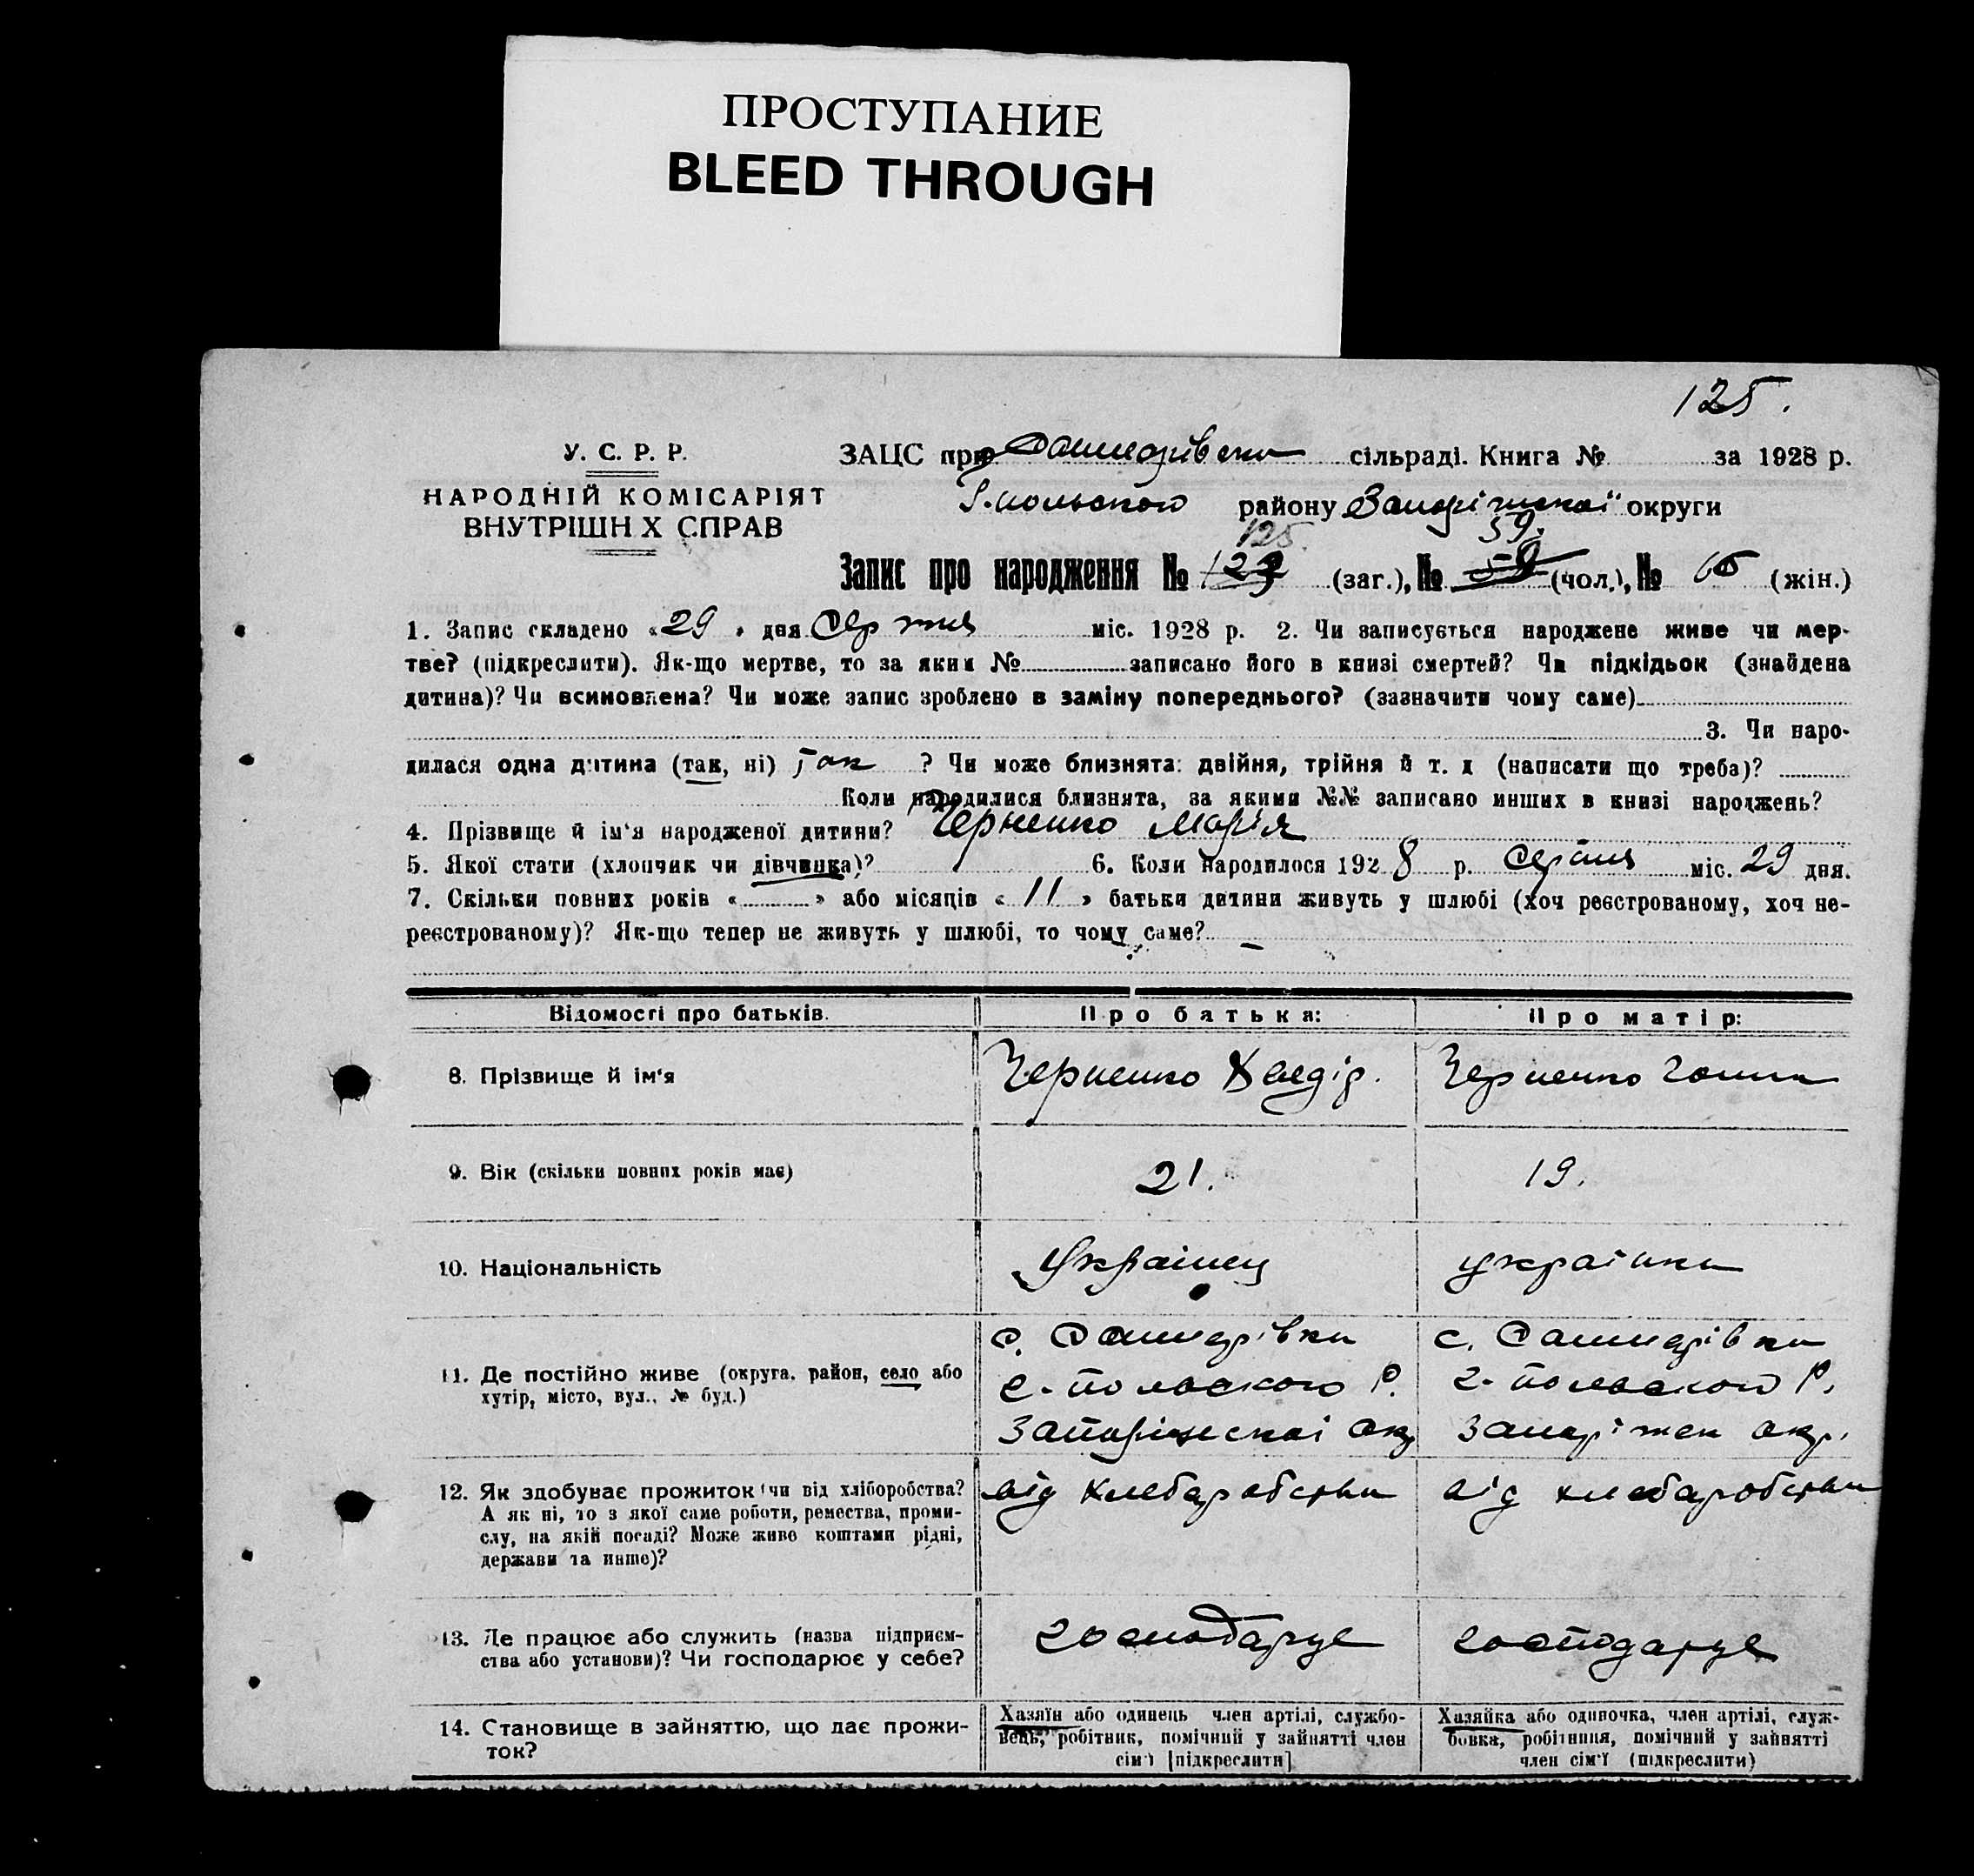 ПРОСТУПАНИЕ
BLEED THROUGH
125.
У. С. Р. Р.
НАРОДНІЙ КОМІСАРІЯТ
ВНУТРІШН Х СПРАВ
ЗАЦС при сільраді. Книга № за 1928 р.
району Запоріжскаї округи
125. 59.
Запис про народження № (заг.), № (чол.), № (жін.)
1. Запис складено «29» дня Серпня міс. 1928 р. 2. Чи записується народжене живе чи мер-
тве? (підкреслити). Як-що мертве, то за яким № записано його в книзі смертей? Чи підкідьок (знайдена
дитина)? Чи всиновлена? Чи може запис зроблено в заміну попереднього? (зазначити чому саме)
3. Чи наро-
дилася одна дитина (так, ні) Так ? Чи може близнята: двійня, трійня й т. д (написати що треба)?
Коли народилися близнята, за якими №№ записано инших в книзі народжень?
4. Прізвище й ім'я народженої дитини? Черненко Марія
5. Якої стати (хлопчик чи дівчинка)? 6. Коли народилося 1928 р. Серпня міс. 29 дня.
7. Скільки повних років « » або місяців «11» батьки дитини живуть у шлюбі (хоч реєстрованому, хоч не-
реєстрованому)? Як-що тепер не живуть у шлюбі, то чому саме? –
Відомості про батьків. Про батька: Про матір:
8. Прізвище й ім'я Черненко Хведір. Черненко Ганна
9. Вік (скільки повних років має) 21. 19.
10. Національність Українец українка
11. Де постійно живе (округа, район, село або
хутір, місто, вул., № буд.)
с. с.
Р. Р.
Запоріжскаі окр Запоріжск окр.
12. Як здобуває прожиток (чи від хліборобства? від хлебаробства від хлебаробства
А як ні, то з якої саме роботи, ремества, проми-
слу, на якій посаді? Може живе коштами рідні,
держави та инше)?
13. Де працює або служить (назва підприєм- господарує господарує
ства або установи)? Чи господарює у себе?
14. Становище в зайняттю, що дає прожи-
ток?
Хазяїн або одинець член артілі, службо-
вець, робітник, помічний у зайнятті член
сім'ї [підкреслити]
Хазяйка або одиночка, член артілі, служ-
бовка, робітниця, помічний у зайнятті
член сім'ї (підкреслити)